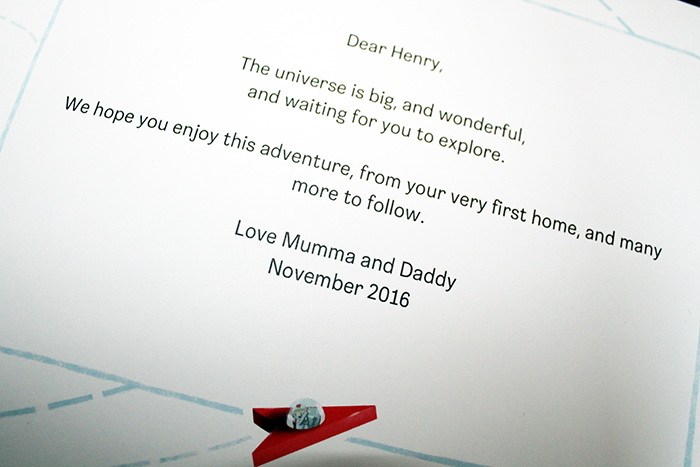 Dear Henry,
The universe is big, and wonderful,
and waiting for you to explore.
We hope you enjoy this adventure, from your very first home, and many
more to follow.
Love Mumma and Daddy
November 2016